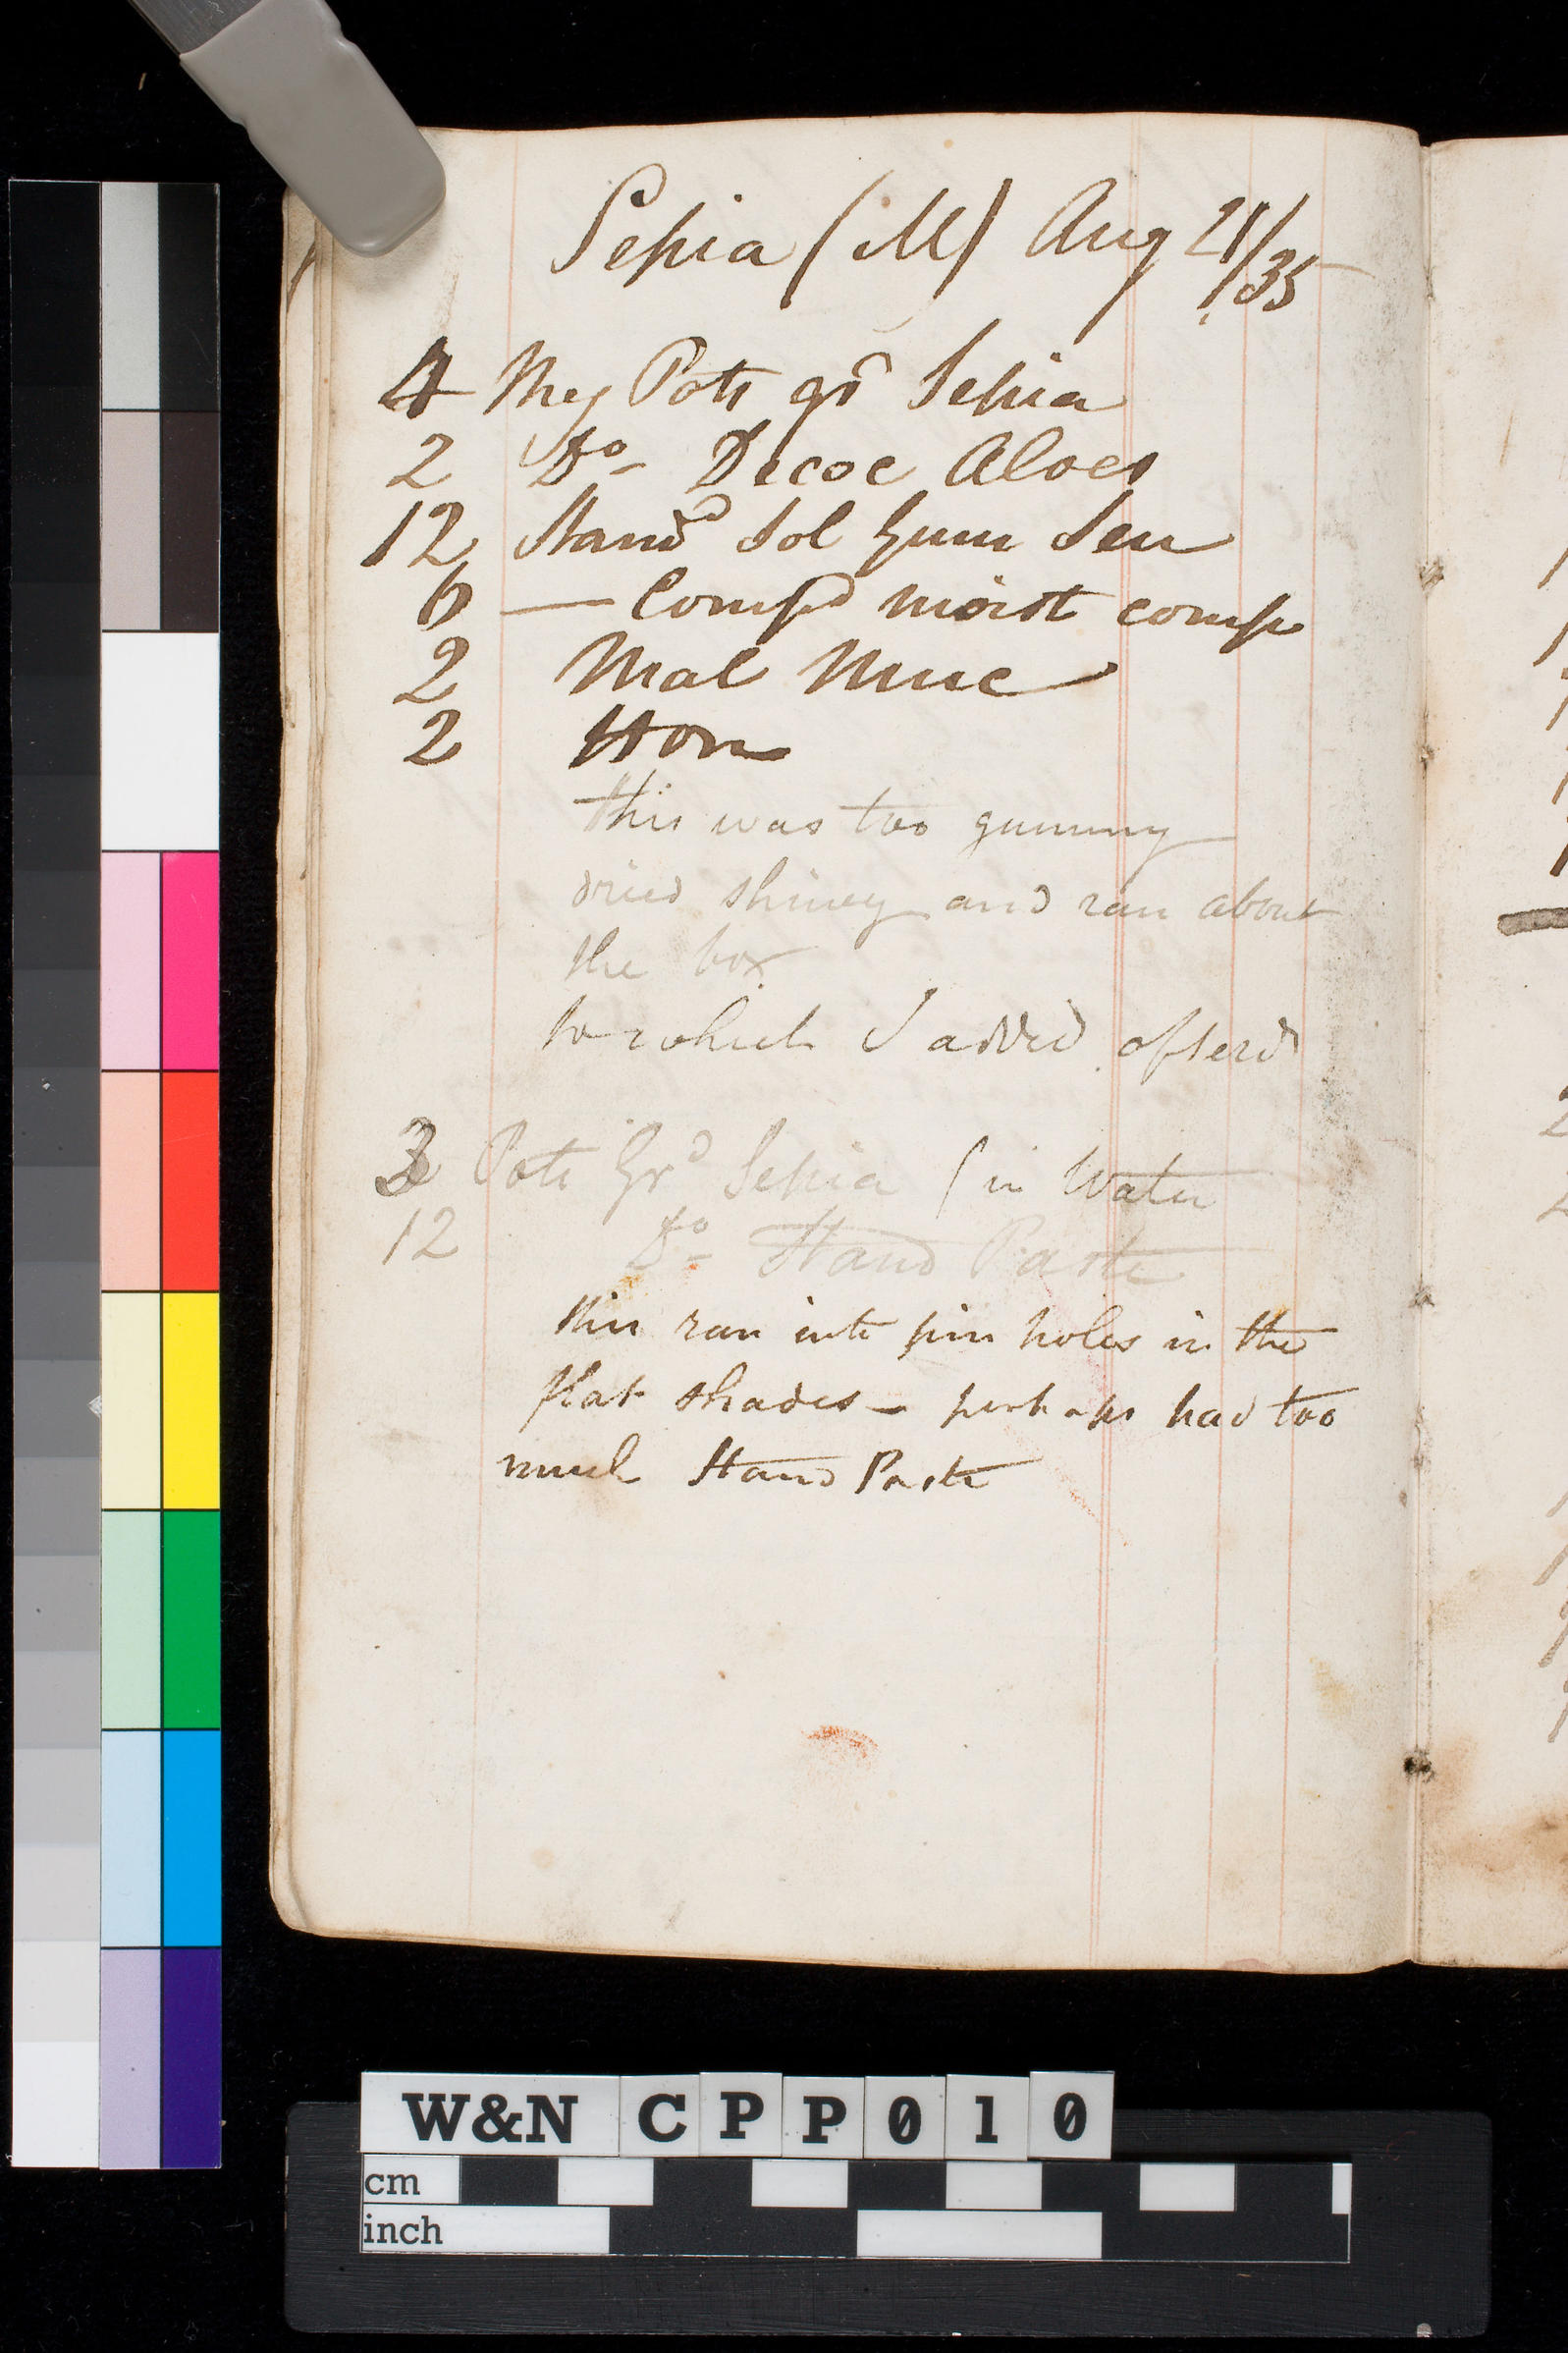 Sepia (M) Aug 21/35
4 Meg Pots grd Sepia
2 Do Decoc Aloes
12 Stand Sol Gum Sen
6 — Compd moist comp
2 Mal Muc
2 Hon
this was too gummy
dried shiney and ran about
the box
to which I added afterd
3 Pots Grd Sepia (in Water
12 Do Stand Paste
this ran into pin holes in the
flat shades - perhaps had too
much Stand Paste
W&N CPP010
cm
inch